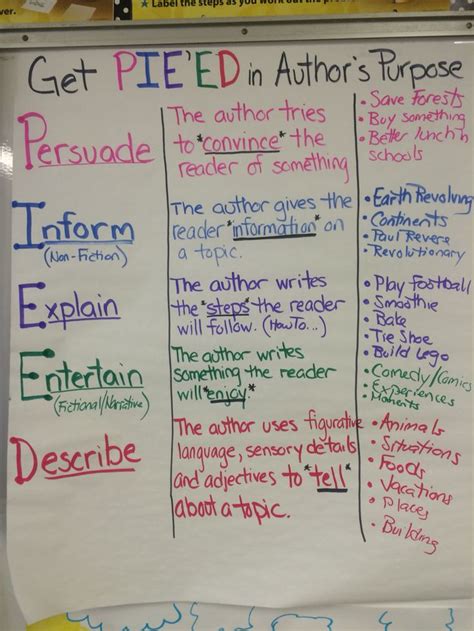 ★ Label the steps as you work out the
ver.
Get PIE'ED in Author's Purpose
Persuade
The author tries
to *convince* the
reader of something
• Save Forests
• Buy something
• Better lunch 'n
schools
Inform
(Non-Fiction)
The author gives the
reader *information* on
a topic.
• Earth Revolving
• Continents
• Paul Revere
• Revolutionary
Explain
The author writes
the *steps* the reader
will follow. (How To...)
• Play football
• Smoothie
• Bake
• Tie Shoe
• Build Lego
Entertain
(Fictional/Narrative)
The author writes
something the reader
will *enjoy.*
• Comedy/Comics
• Experiences
• Moments
Describe
The author uses figurative
language, sensory details
and adjectives to *tell*
about a topic.
• Animals
• Situations
• Foods
• Vacations
• Places
• Building